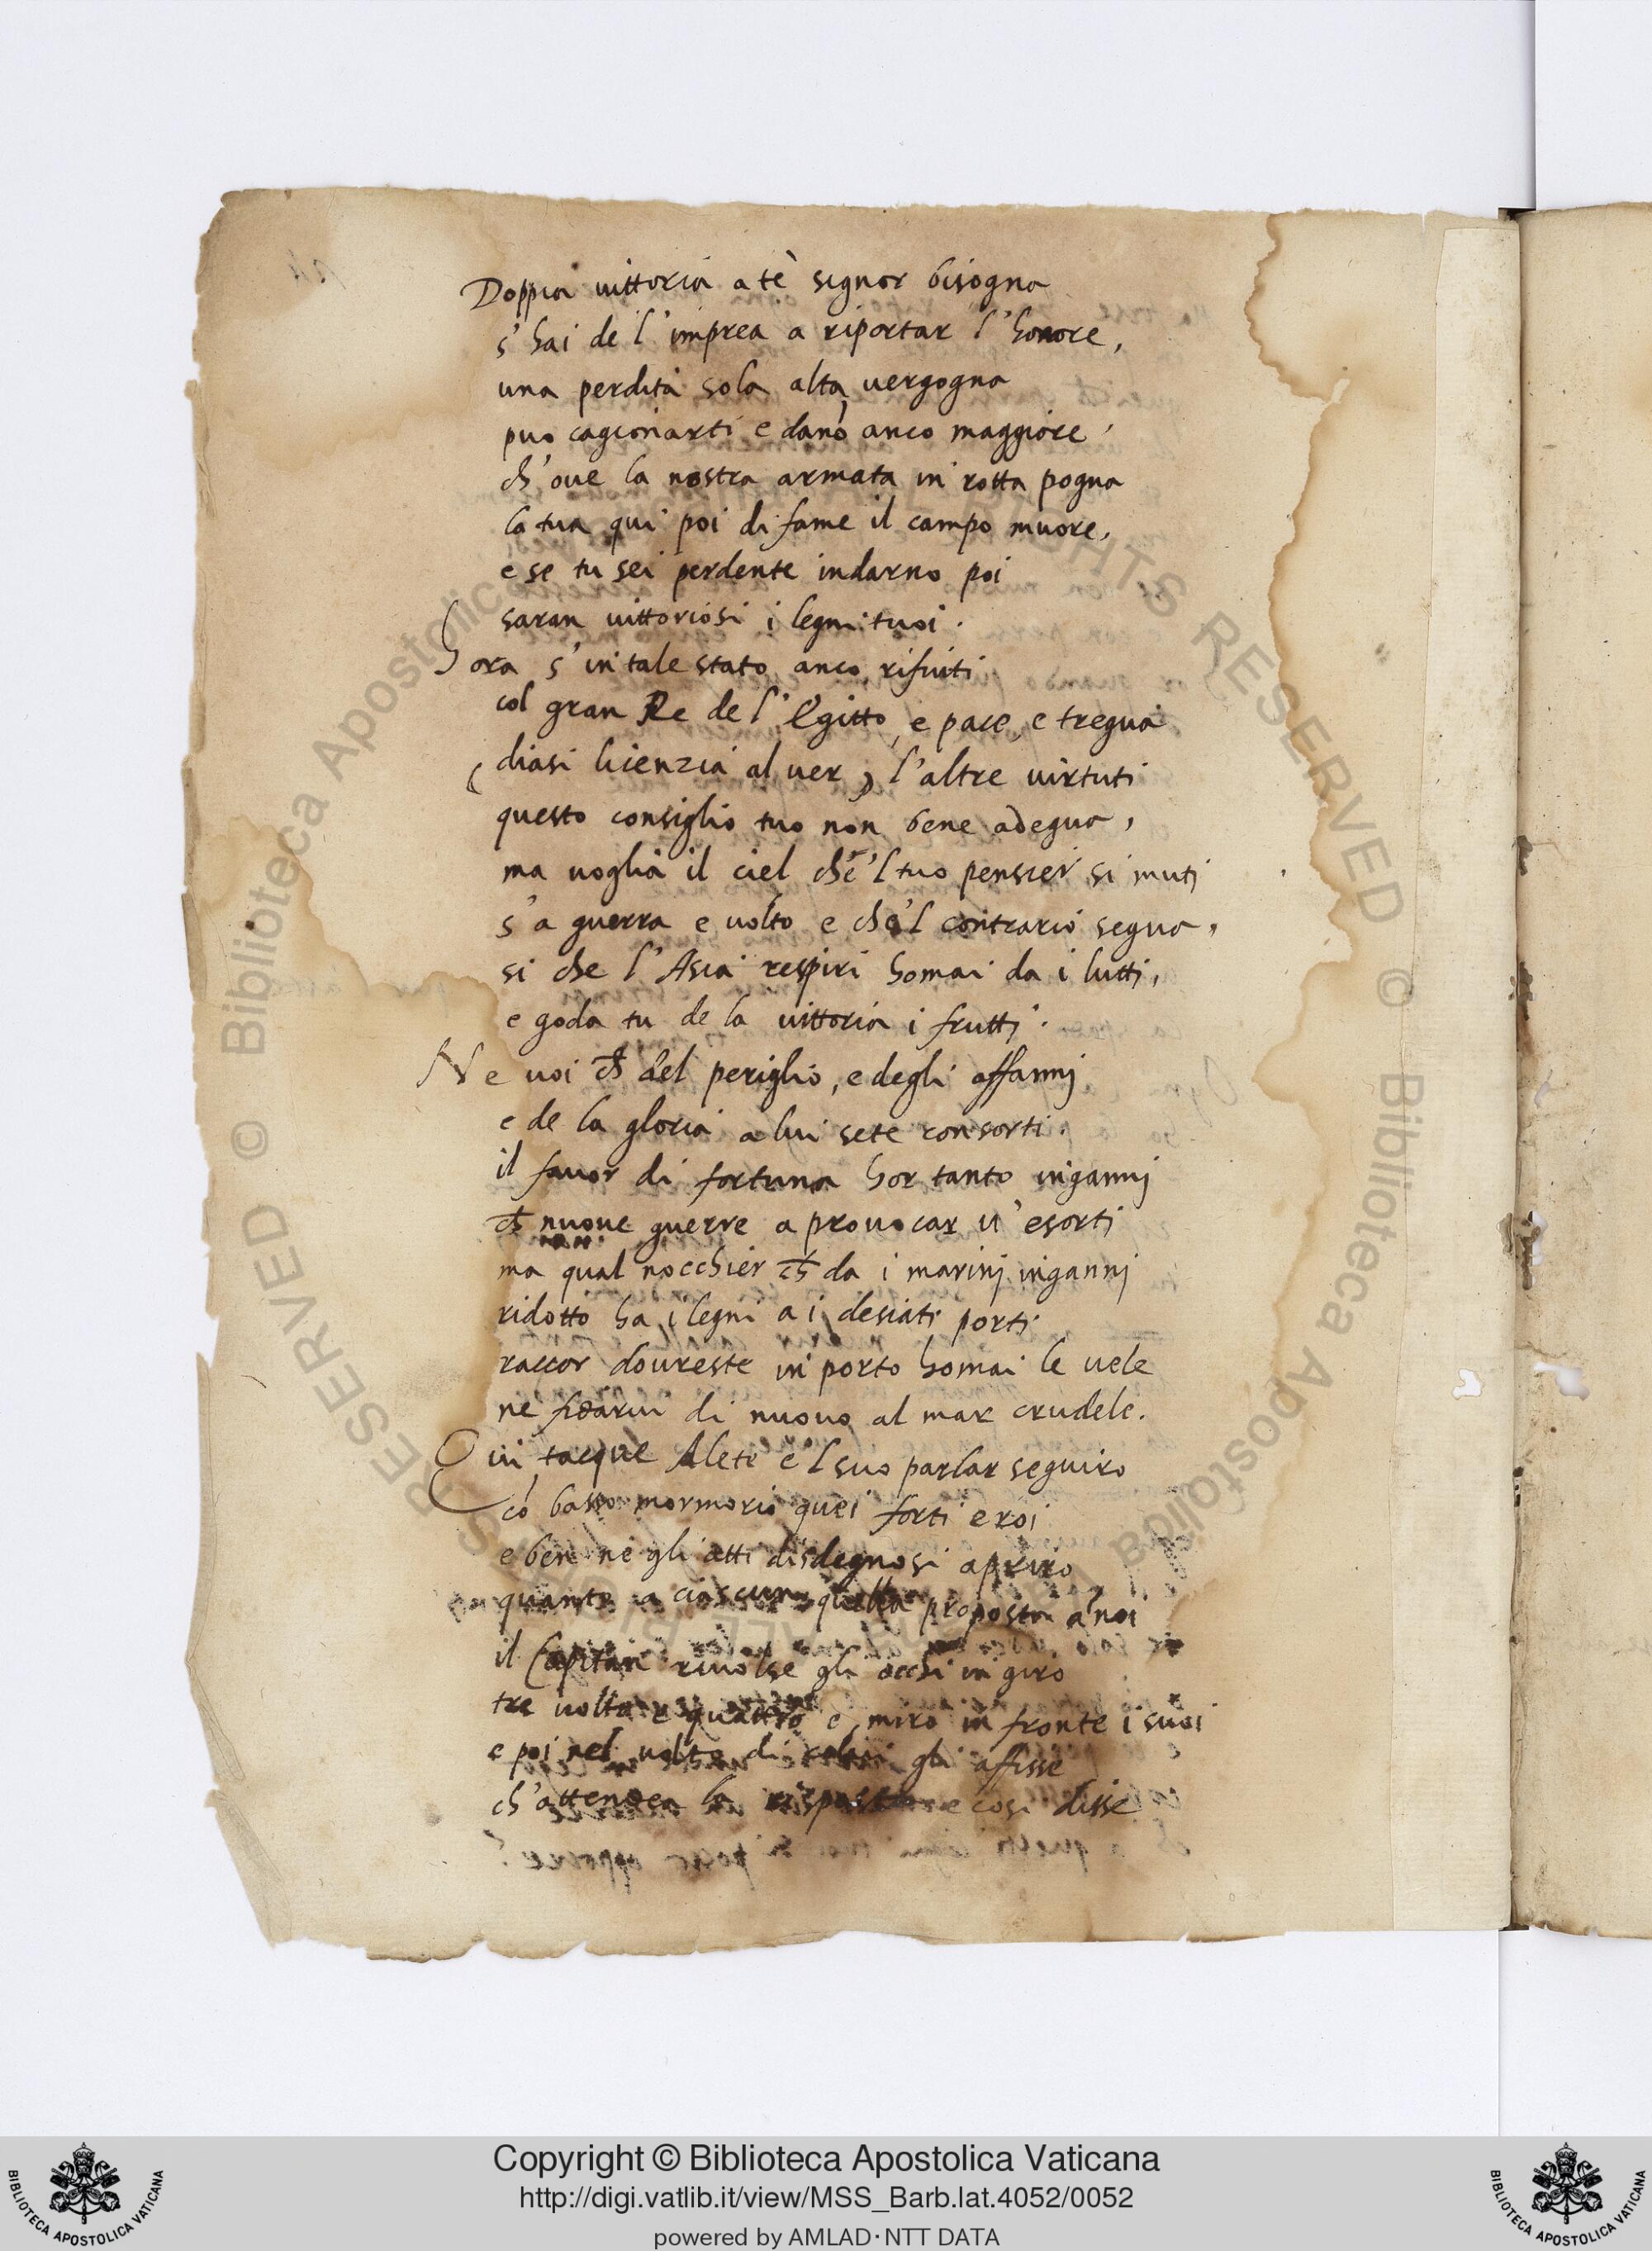 Doppia vittoria a tè signor bisogna
s'hai de l'imprea a riportar l'honore,
una perdita sola alta vergogna
puo cagionarti e danõ anco maggiore
ch'oue la nostra armata in rotta pogna
la tua qui poi di fame il campo muore,
e se tu sei perdente indarno poi
saran vittoriosi i legni tuoi.
Hora s'in tale stato anco rifiuti
col gran Re de l'Egitto, e pace, e tregua
(diasi licenzia al uer) l'altre virtuti
questo consiglio tuo non bene adegua,
ma uoglia il ciel che'l tuo pensier si muti
s'a guerra e uolto e che'l contrario segua,
si che l'Asia respiri homai da i lutti,
e goda tu de la vittoria i frutti.
Ne uoi ch̄ del periglio, e degli affanni
e de la gloria a lui sete consorti.
il fauor di fortuna hor tanto inganni
ch̄ nuoue guerre a prouocar u'esorti
ma qual nocchier ch̄ da i marini inganni
ridotto ha i legni a i desiati porti
raccor doureste in porto homai le uele
ne fidarui di nuouo al mar crudele.
Qui tacque Alete e'l suo parlar seguiro
cõ basso mormorio quei forti eroi
e ben ne gli atti disdegnosi apriro
quanto a ciascun quella proposta anoi
il Capitan riuolse gli occhi in giro
tre uolte e quattro e miro in fronte i suoi
e poi nel uolto di colui gli affisse
ch'attendea la risposta e cosi disse
© Biblioteca Apostolica
RIGHTS RESERVED © Biblioteca Apostolica
RESERVED
Copyright © Biblioteca Apostolica Vaticana
http://digi.vatlib.it/view/MSS_Barb.lat.4052/0052
powered by AMLAD·NTT DATA
BIBLIOTECA APOSTOLICA VATICANA
BIBLIOTECA APOSTOLICA VATICANA